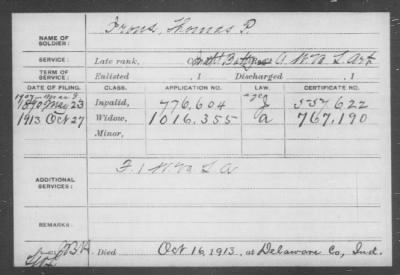 NAME OF SOLDIER: Frons, Thomas P.
SERVICE: Late rank, A. W. Va. L. Art
TERM OF SERVICE: Enlisted , 1 Discharged , 1
DATE OF FILING. CLASS. APPLICATION NO. LAW. CERTIFICATE NO.
1890 May 23 Invalid, 776,604 557,622
1913 Oct 27 Widow, 1016,355 a 767,190
Minor,
ADDITIONAL SERVICES: F. 1 W. Va L A
REMARKS:
Died Oct 16, 1913, at Delaware Co, Ind.